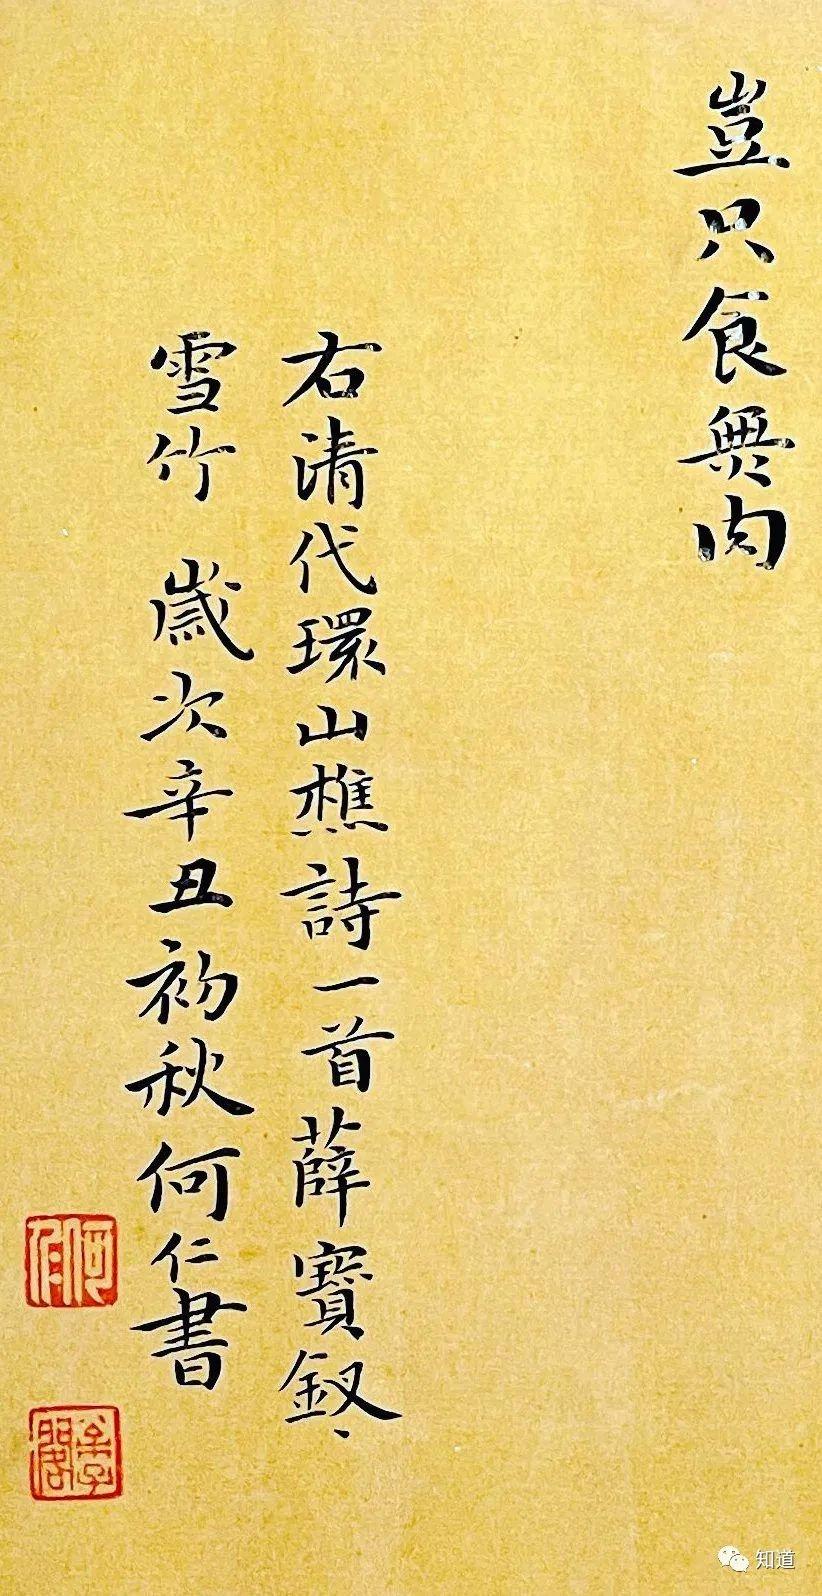 豈只食無肉
右清代環山樵詩一首薛寶釵、
雪竹 歲次辛丑初秋何仁書
何仁
知道